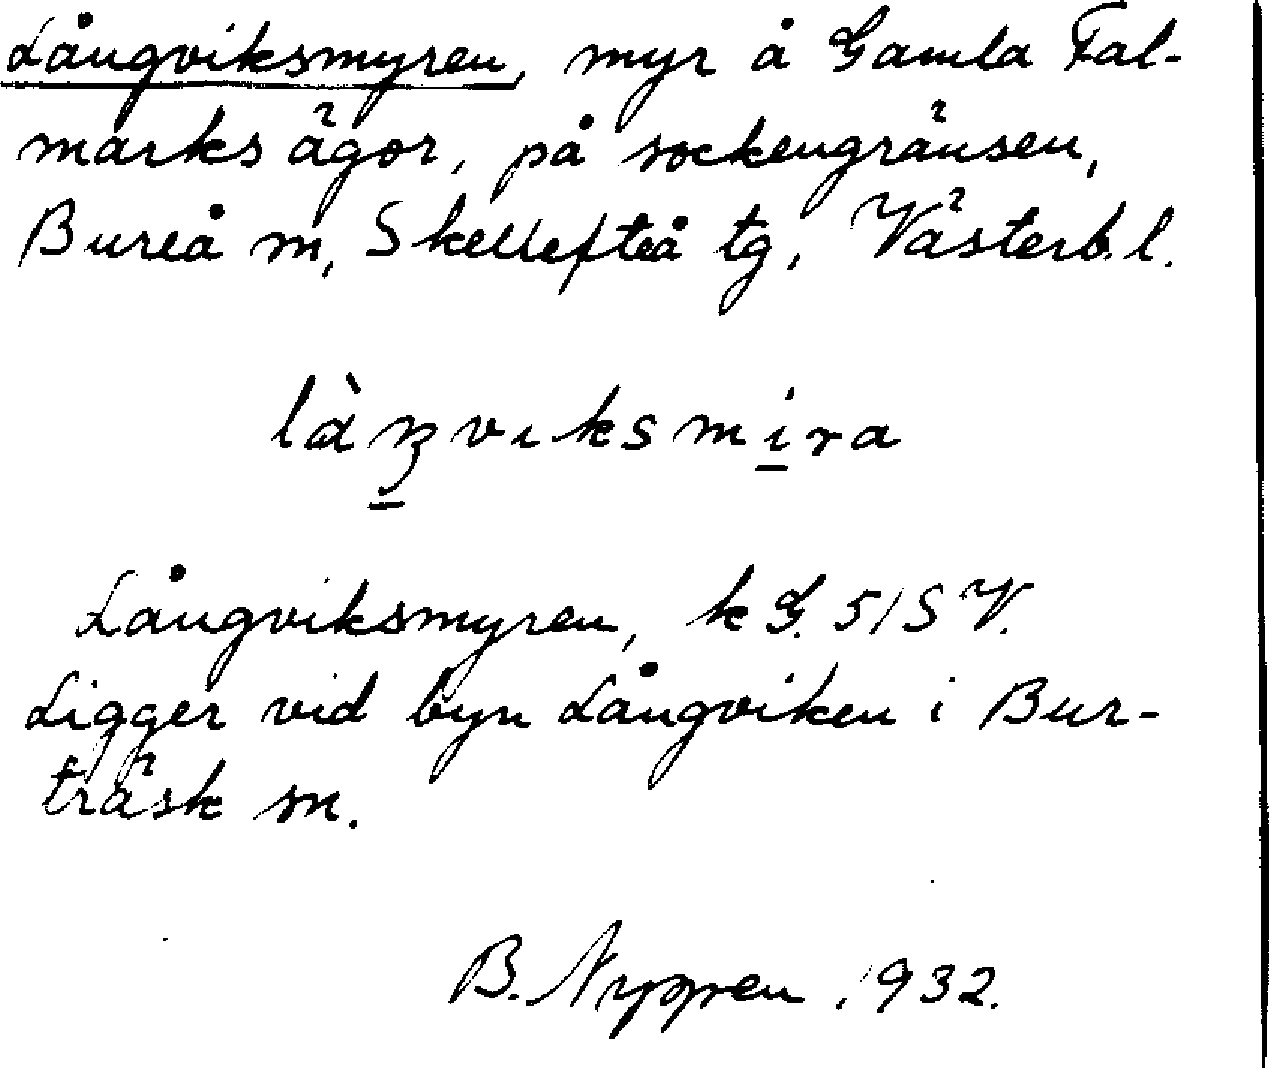 Långviksmyren, myr å Gamla Fal-
marks ägor, på sockengränsen,
Bureå sn, Skellefteå tg, Västerb.l.
làŋviksmira
Långviksmyren, k G. 51 S V.
Ligger vid byn Långviken i Bur-
träsk sn.
B. Nygren 1932.